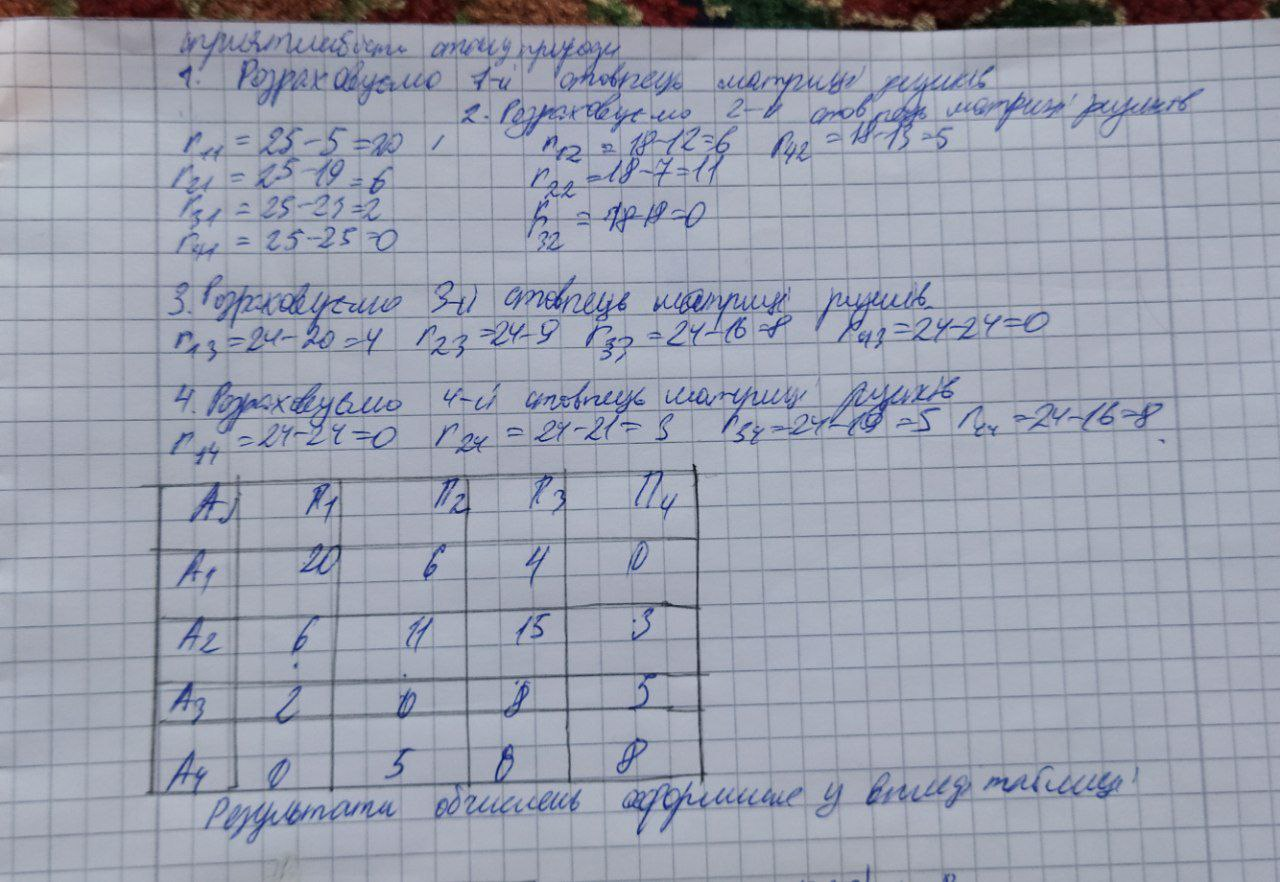 сприятливості стану природи
1. Розраховуємо 1-й стовпець матриці ризиків
2. Розраховуємо 2-й стовпець матриці ризиків
r11 = 25-5=20 r12 = 18-12=6 r42 = 18-13=5
r21 = 25-19=6 r22 = 18-7=11
r31 = 25-23=2 r32 = 18-18=0
r41 = 25-25=0
3. Розраховуємо 3-й стовпець матриці ризиків
r13=24-20=4 r23=24-9 r33=24-16=8 r43=24-24=0
4. Розраховуємо 4-й стовпець матриці ризиків
r14=24-24=0 r24=24-21=3 r34=24-19=5 r44=24-16=8
Aj П1 П2 П3 П4
A1 20 6 4 0
A2 6 11 15 3
A3 2 0 8 5
A4 0 5 0 8
Результати обчислень оформимо у вигляді таблиці